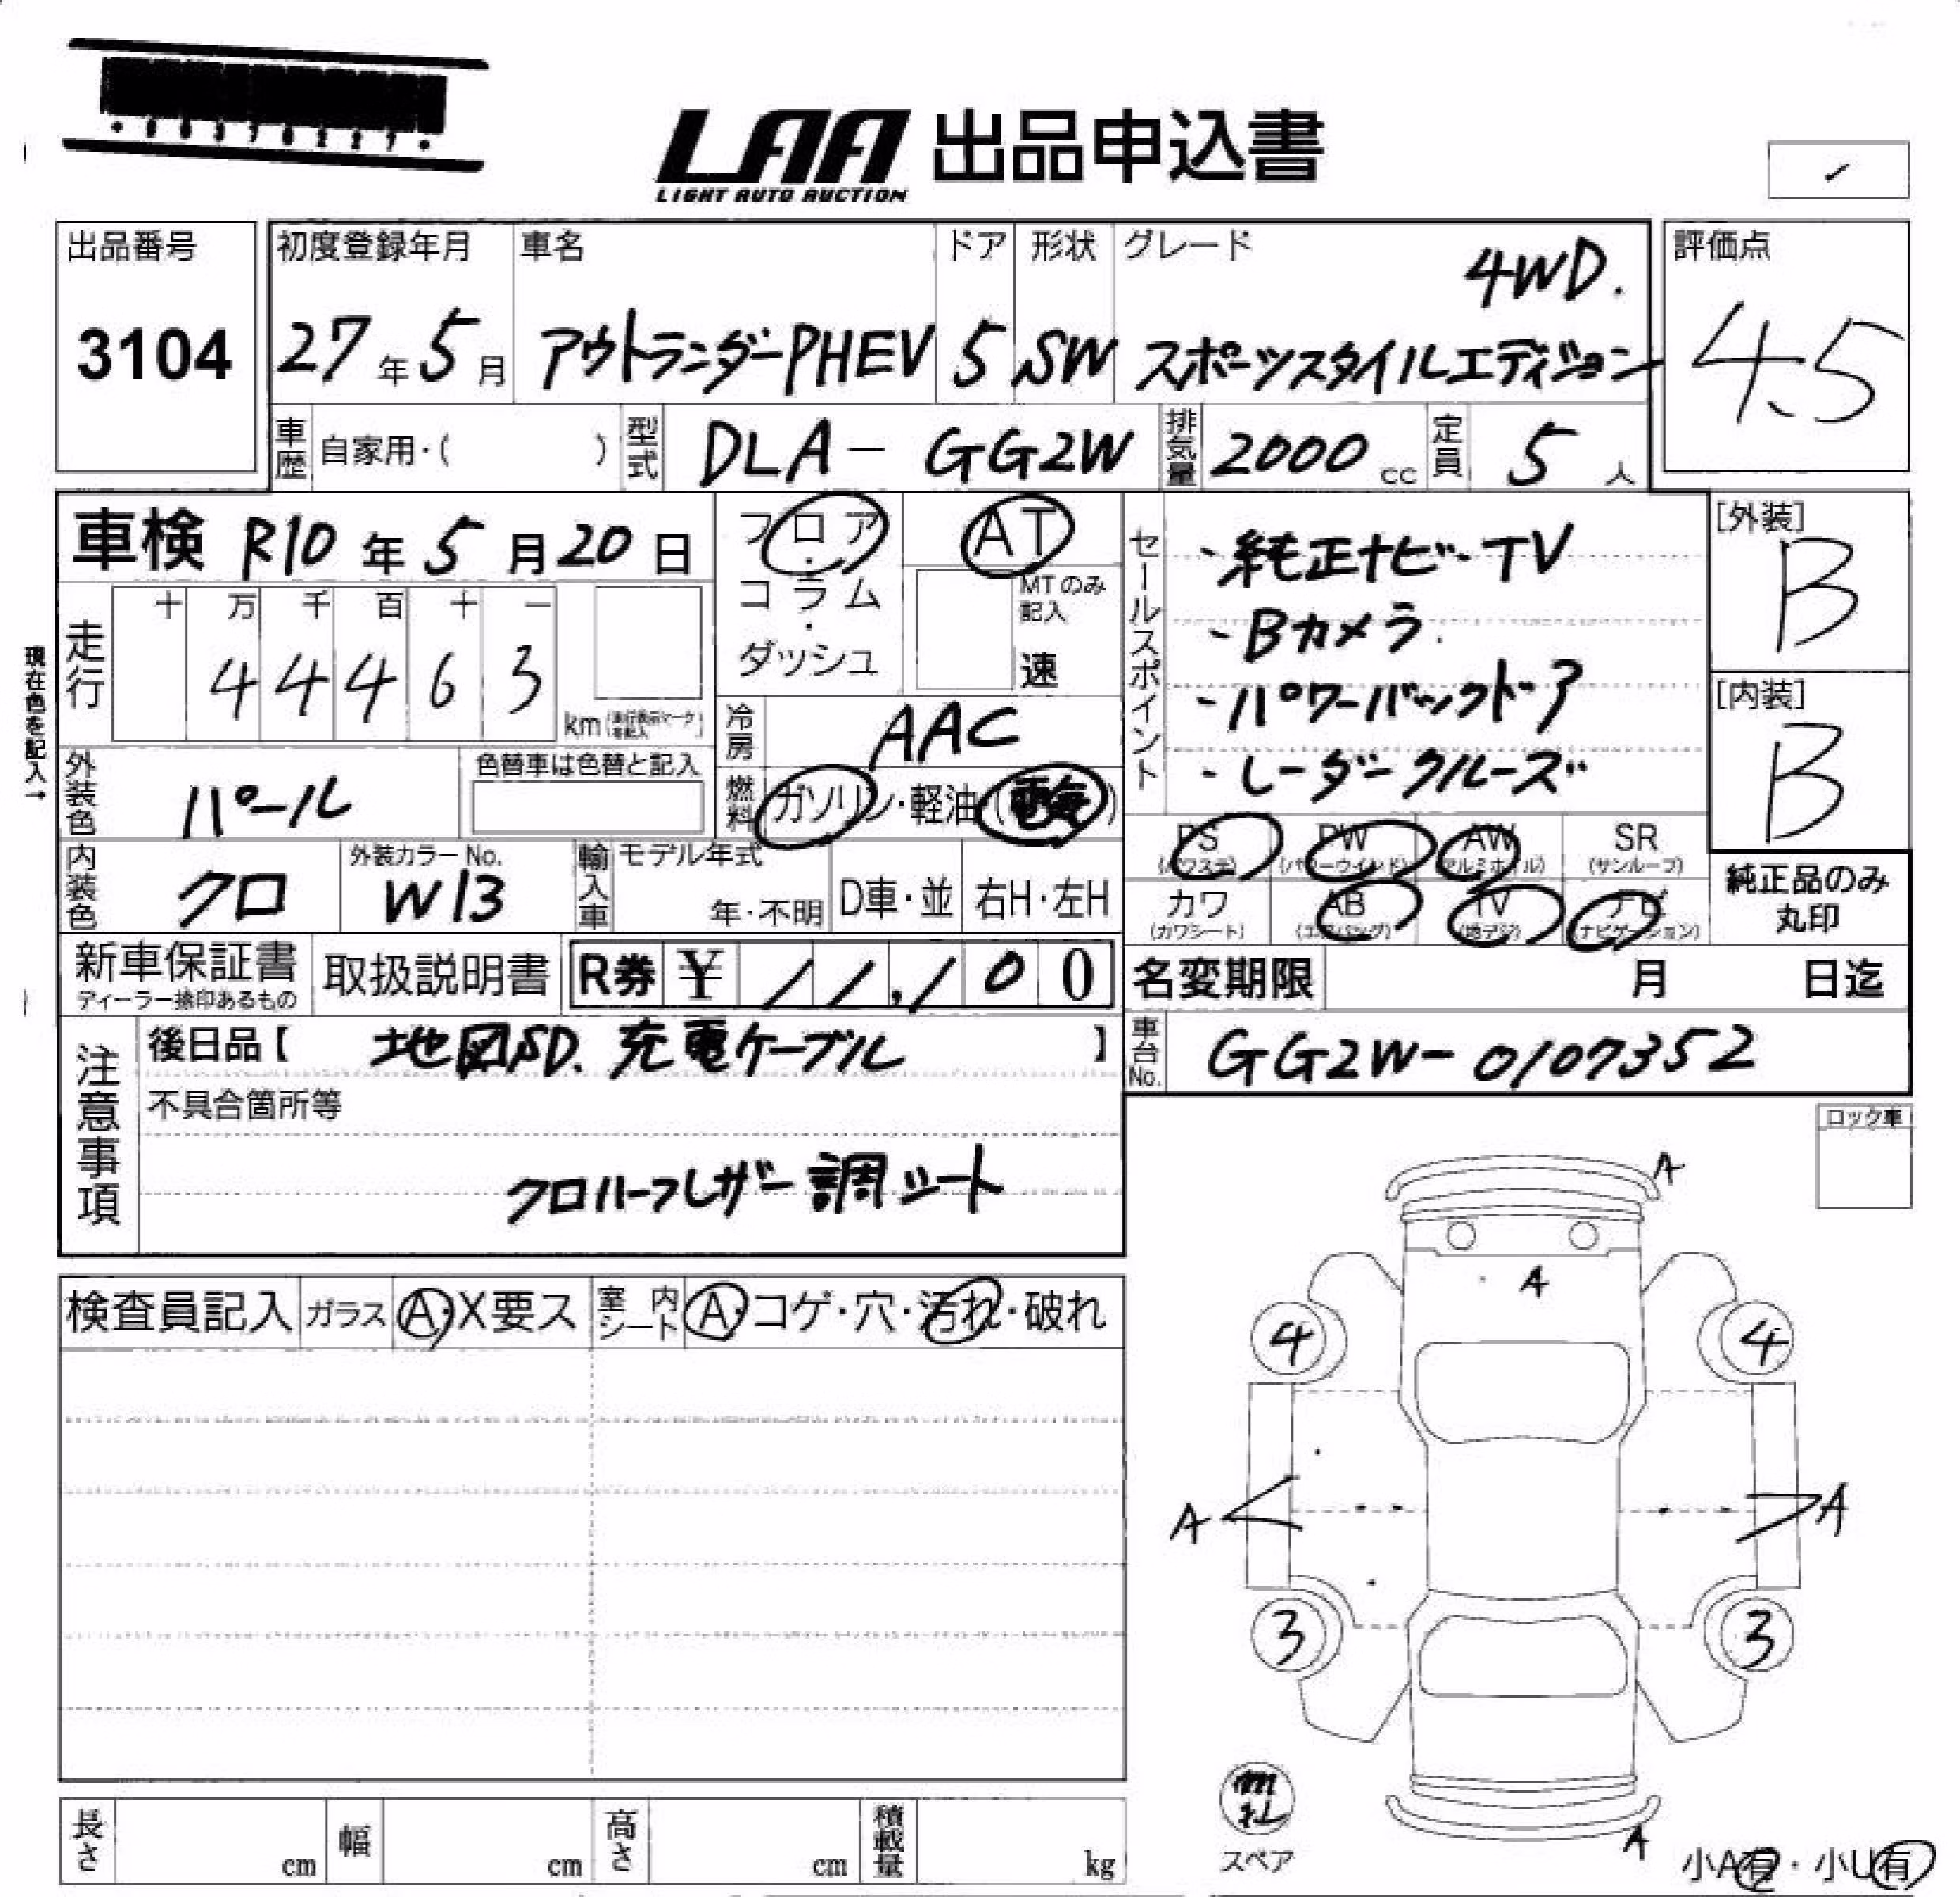 LAA 出品申込書
LIGHT AUTO AUCTION
出品番号
3104
初度登録年月
27年5月
車名
アウトランダーPHEV
ドア
5
形状
SW
グレード
4WD.
スポーツスタイルエディション
評価点
4.5
車歴 自家用・( )
型式 DLA-GG2W
排気量 2000 cc
定員 5 人
車検 R10年5月20日
フロア・コラム・ダッシュ
AT
MTのみ記入
速
セールスポイント
・純正ナビ・TV
・Bカメラ
・パワーバックドア
・レーダークルーズ
[外装]
B
[内装]
B
現在色を記入→
走行
十 万 千 百 十 一
4 4 4 6 3
km
冷房 AAC
燃料 ガソリン・軽油・(電気)
外装色 パール
色替車は色替と記入
内装色 クロ
外装カラーNo.
W13
輸入車 モデル年式
年・不明
D車・並
右H・左H
PS
(パワステ)
PW
(パワーウインド)
AW
(アルミホイル)
SR
(サンルーフ)
カワ
(カワシート)
AB
(エアバッグ)
TV
(地デジ)
ナビ
(ナビゲーション)
純正品のみ
丸印
新車保証書
ディーラー捺印あるもの
取扱説明書
R券 ¥ 11,100
名変期限 月 日迄
注意事項
後日品【 地図SD. 充電ケーブル 】
不具合箇所等
クロハーフレザー調シート
車台No. GG2W-0107352
ロック車
検査員記入
ガラス A・X要ス
室内シート A・コゲ・穴・汚れ・破れ
A
A
4 4
A A
3 3
A
スペア
小A有・小U有
長さ cm
幅 cm
高さ cm
積載量 kg